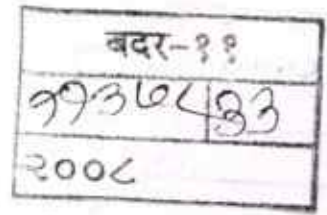 बदर-११
११३७८ ३३
२००८